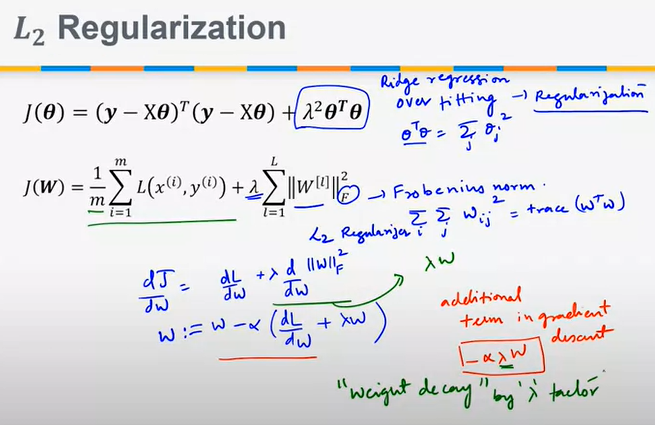 L₂ Regularization
J(θ) = (y − Xθ)ᵀ(y − Xθ) + λ²θᵀθ
Ridge regression
over fitting → Regularization
θᵀθ = Σ_j θ_j²
J(W) = 1/m Σ_{i=1}^{m} L(x⁽ⁱ⁾, y⁽ⁱ⁾) + λ Σ_{l=1}^{L} ‖W^{[l]}‖²_F
→ Frobenius norm.
L₂ Regularizer Σ_i Σ_j w_ij² = trace (wᵀw)
dJ/dw = dL/dw + λ d/dw ‖w‖²_F
λw
w := w − α (dL/dw + λw)
additional
term in gradient
descent
−αλw
"weight decay" by 'λ' factor